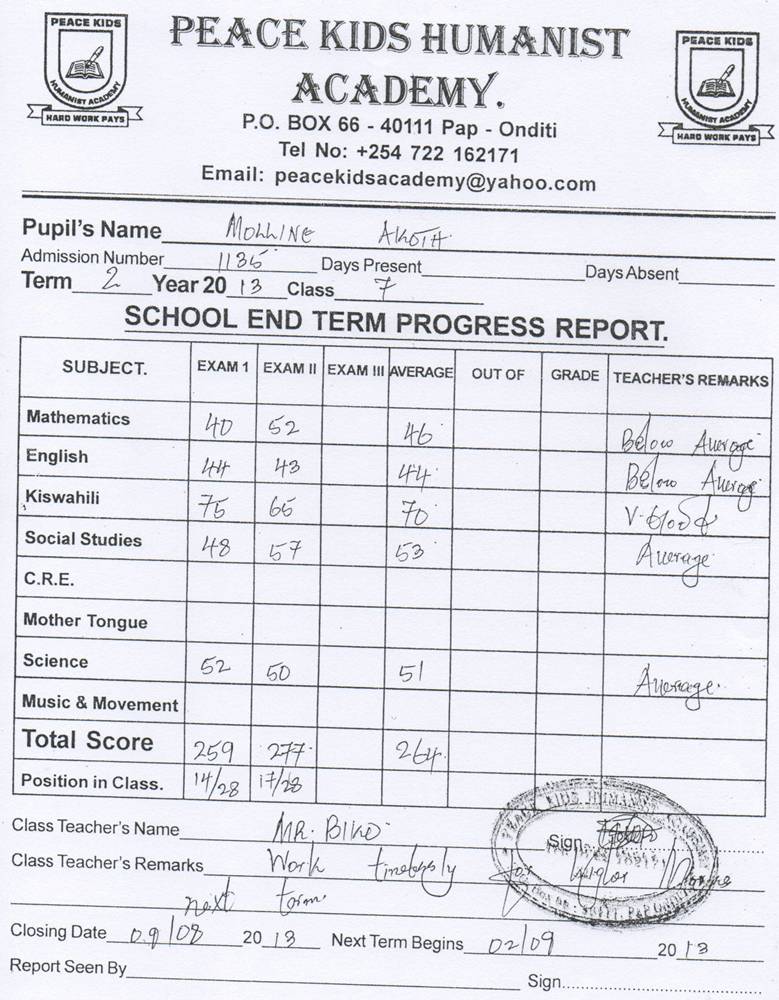 PEACE KIDS
HUMANIST ACADEMY
HARD WORK PAYS
PEACE KIDS HUMANIST
ACADEMY.
PEACE KIDS
HUMANIST ACADEMY
HARD WORK PAYS
P.O. BOX 66 - 40111 Pap - Onditi
Tel No: +254 722 162171
Email: peacekidsacademy@yahoo.com
Pupil's Name MOLLINE AKOTH
Admission Number 1135 Days Present Days Absent
Term 2 Year 20 13 Class 7
SCHOOL END TERM PROGRESS REPORT.
SUBJECT. EXAM 1 EXAM II EXAM III AVERAGE OUT OF GRADE TEACHER'S REMARKS
Mathematics 40 52 46 Below Average
English 44 43 44 Below Average
Kiswahili 75 65 70 V. Good
Social Studies 48 57 53 Average
C.R.E.
Mother Tongue
Science 52 50 51 Average
Music & Movement
Total Score 259 277 264
Position in Class. 14/28 17/28
Class Teacher's Name MR. BIKO Sign
Class Teacher's Remarks Work tirelessly for
next term.
Closing Date 09/08 20 13 Next Term Begins 02/09 20 13
Report Seen By Sign
PEACE KIDS HUMANIST